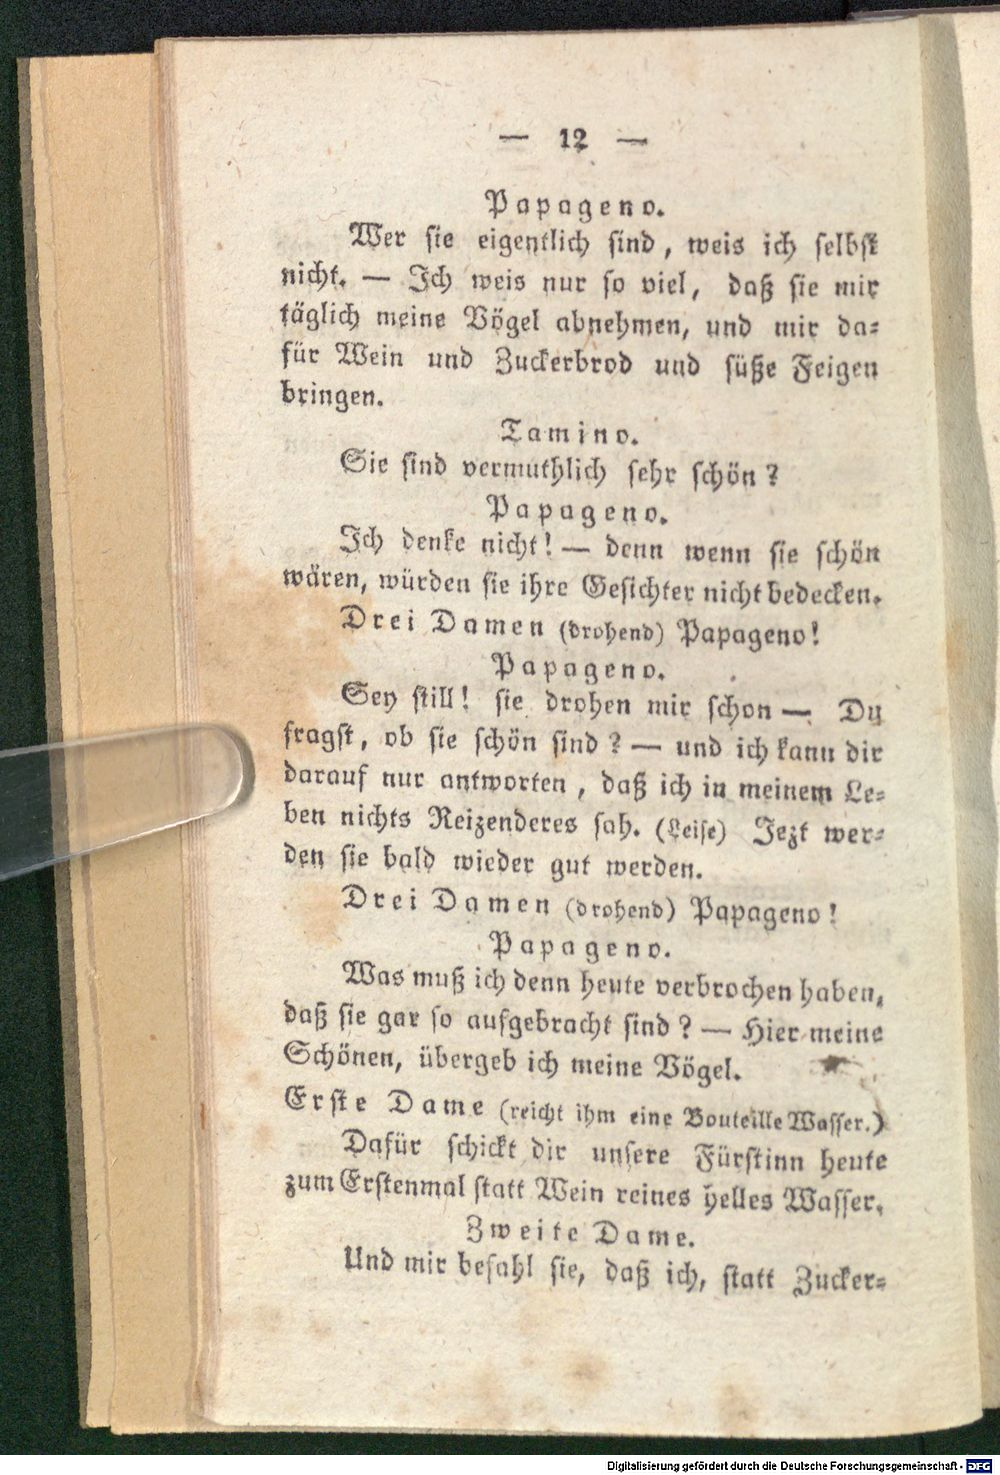 — 12 —
Papageno.
Wer sie eigentlich sind, weis ich selbst
nicht. — Ich weis nur so viel, daß sie mir
täglich meine Vögel abnehmen, und mir da=
für Wein und Zuckerbrod und süße Feigen
bringen.
Tamino.
Sie sind vermuthlich sehr schön?
Papageno.
Ich denke nicht! — denn wenn sie schön
wären, würden sie ihre Gesichter nicht bedecken.
Drei Damen (drohend) Papageno!
Papageno.
Sey still! sie drohen mir schon — Du
fragst, ob sie schön sind? — und ich kann dir
darauf nur antworten, daß ich in meinem Le=
ben nichts Reizenderes sah. (Leise) Jezt wer=
den sie bald wieder gut werden.
Drei Damen (drohend) Papageno!
Papageno.
Was muß ich denn heute verbrochen haben,
daß sie gar so aufgebracht sind? — Hier meine
Schönen, übergeb ich meine Vögel.
Erste Dame (reicht ihm eine Bouteille Wasser.)
Dafür schickt dir unsere Fürstinn heute
zum Erstenmal statt Wein reines helles Wasser.
Zweite Dame.
Und mir befahl sie, daß ich, statt Zucker=
Digitalisierung gefördert durch die Deutsche Forschungsgemeinschaft - DFG